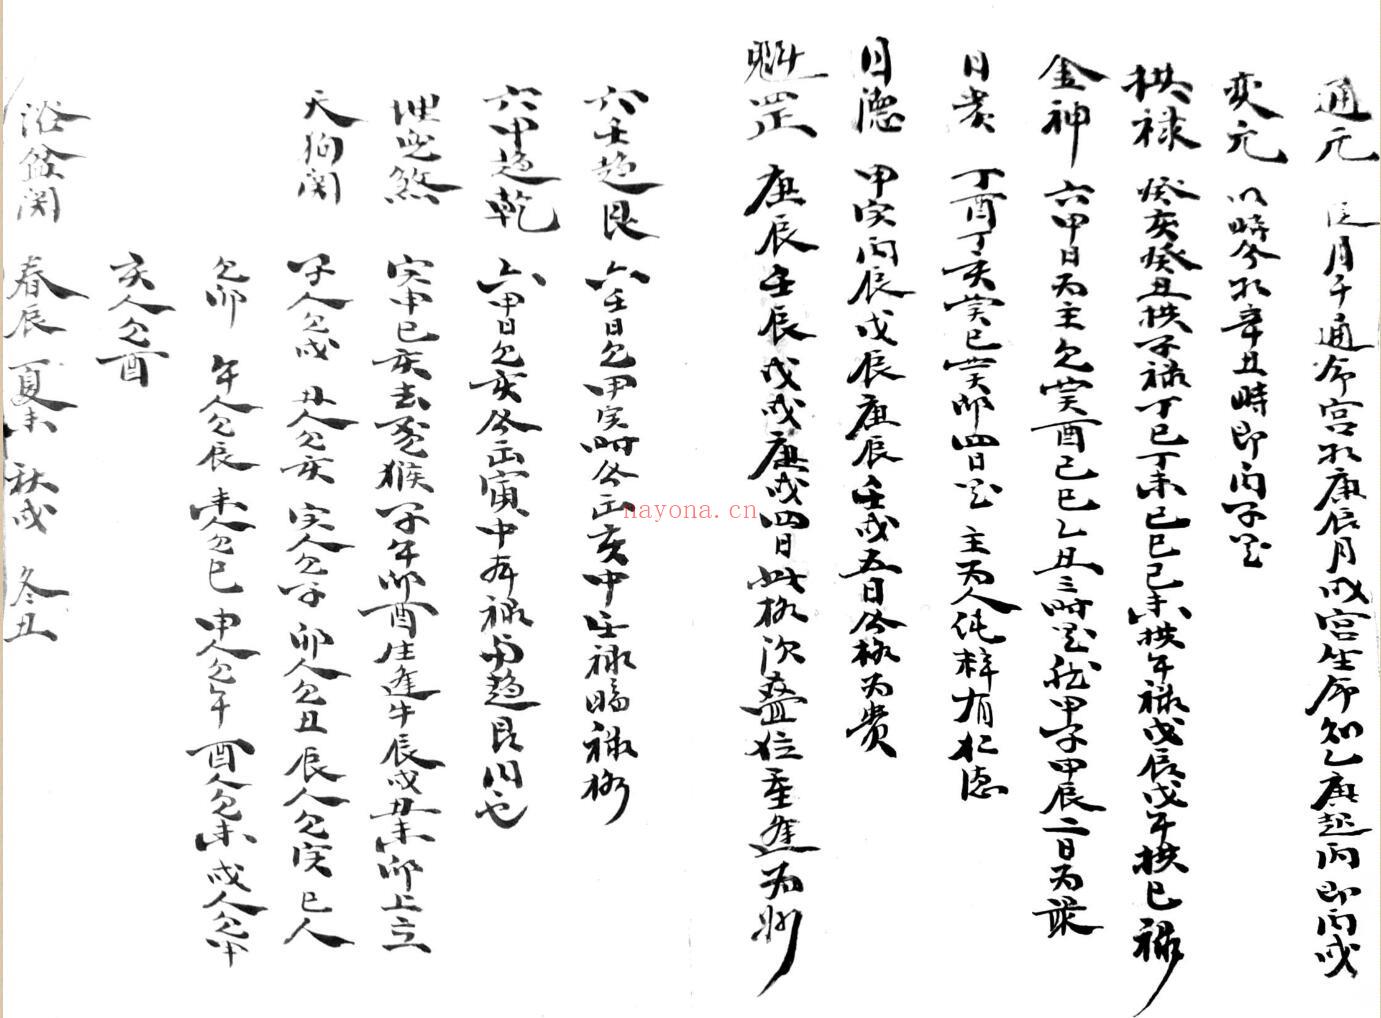 通元 月干通命宮 庚辰月戌宮生命知乙庚起丙即丙戌
变元 以時 辛丑時即丙子
拱禄 癸亥癸丑拱子禄丁巳丁未己巳己未拱午禄戊辰戊午拱巳禄
金神 六甲日為主见癸酉己巳乙丑三時 甲子甲辰二日為最
日贵 丁酉丁亥癸巳癸卯四日 主為人純粹有仁德
日德 甲寅丙辰戊辰庚辰壬戌五日 格為贵
魁罡 庚辰壬辰戊戌庚戌四日此格須叠位重逢為
六壬趋艮 六壬日见甲寅時 亥中壬禄 禄格
六甲趋乾 六甲日见亥 寅中有禄与趋艮同也
埋兒煞 寅申巳亥去 猴子午卯酉生逢牛辰戌丑未卯上立
天狗関 子人见戌 丑人见亥 寅人见子 卯人见丑 辰人见寅 巳人
见卯 午人见辰 未人见巳 申人见午 酉人见未 戌人见申
亥人见酉
浴盆関 春辰 夏未 秋戌 冬丑
nayona.cn